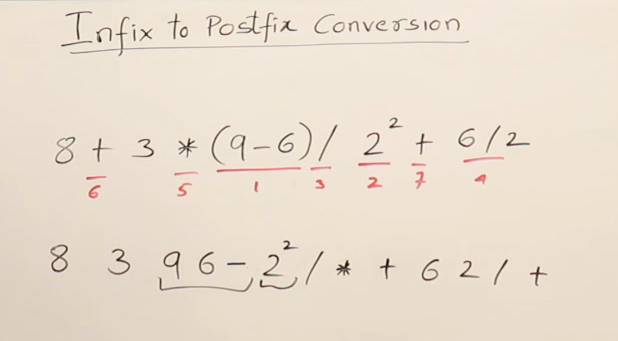 Infix to Postfix Conversion
8 + 3 * (9-6) / 2² + 6/2
6 5 1 3 2 7 4
8 3 9 6 - 2² / * + 6 2 / +